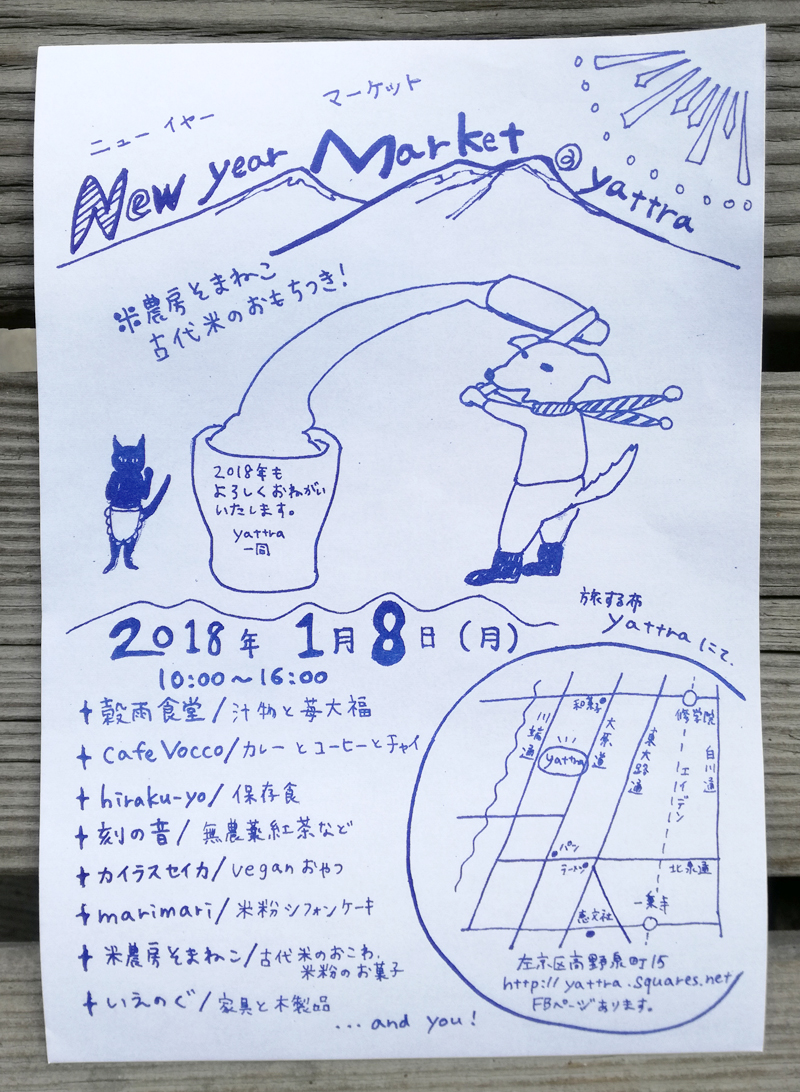 ニューイヤー
マーケット
New year Market @yattra
米農房そまねこ
古代米のおもちつき!
2018年も
よろしくおねがい
いたします。
yattra
一同
2018年 1月8日(月)
10:00〜16:00
旅する布
yattraにて.
穀雨食堂/汁物と苺大福
cafe Vocco/カレーとコーヒーとチャイ
hiraku-yo/保存食
刻の音/無農薬紅茶など
カイラスセイカ/veganおやつ
marimari/米粉シフォンケーキ
米農房そまねこ/古代米のおこわ.
米粉のお菓子
いえのぐ/家具と木製品
...and you!
和菓子
修学院
川端通
大原道
東大路通
エイデン
白川通
yattra
パン
北泉通
一乗寺
恵文社
左京区高野泉町15
http://yattra.squares.net/
FBページあります。